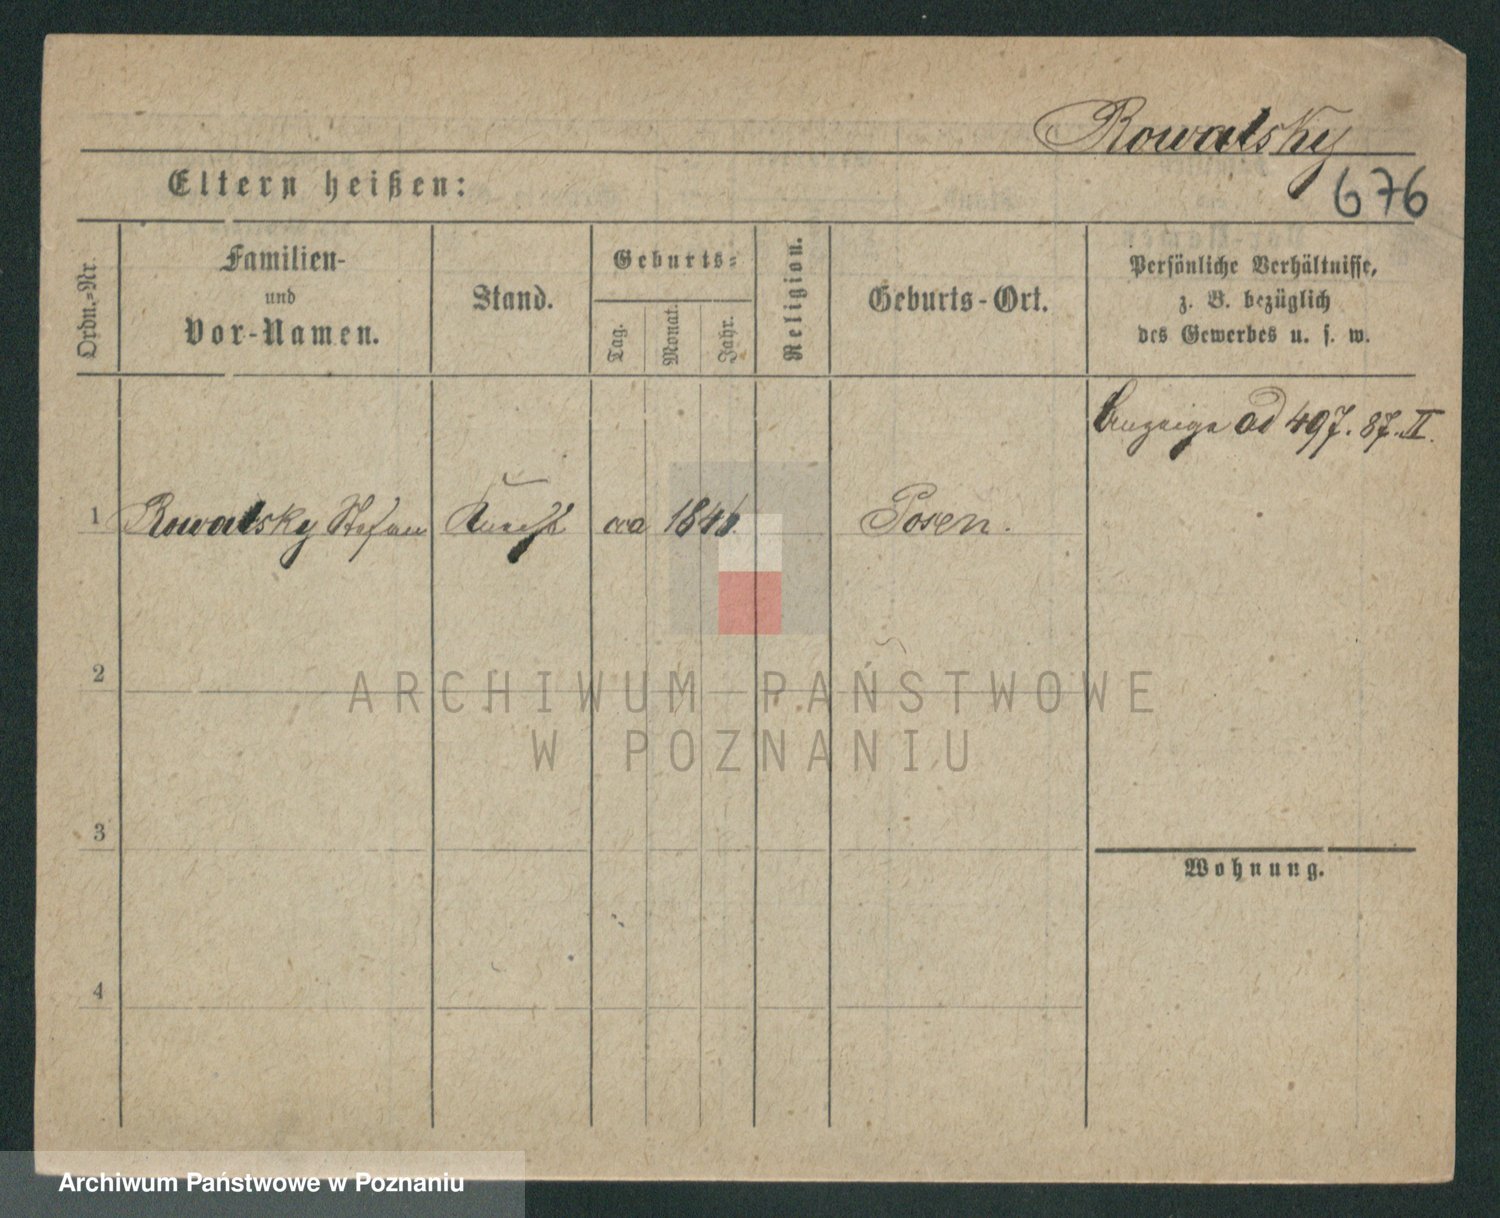 Rowalsky
676
Eltern heißen:
Ordn.=Nr.
Familien-
und
Vor-Namen.
Stand.
Geburts=
Tag.
Monat.
Jahr.
Religion.
Geburts-Ort.
Persönliche Verhältnisse,
z. B. bezüglich
des Gewerbes u. s. w.
Anzeige ad 497. 87. II.
1 Rowalsky Stefan Knecht cca 1846. Posen.
2
3
4
Wohnung.
ARCHIWUM PAŃSTWOWE
W POZNANIU
Archiwum Państwowe w Poznaniu